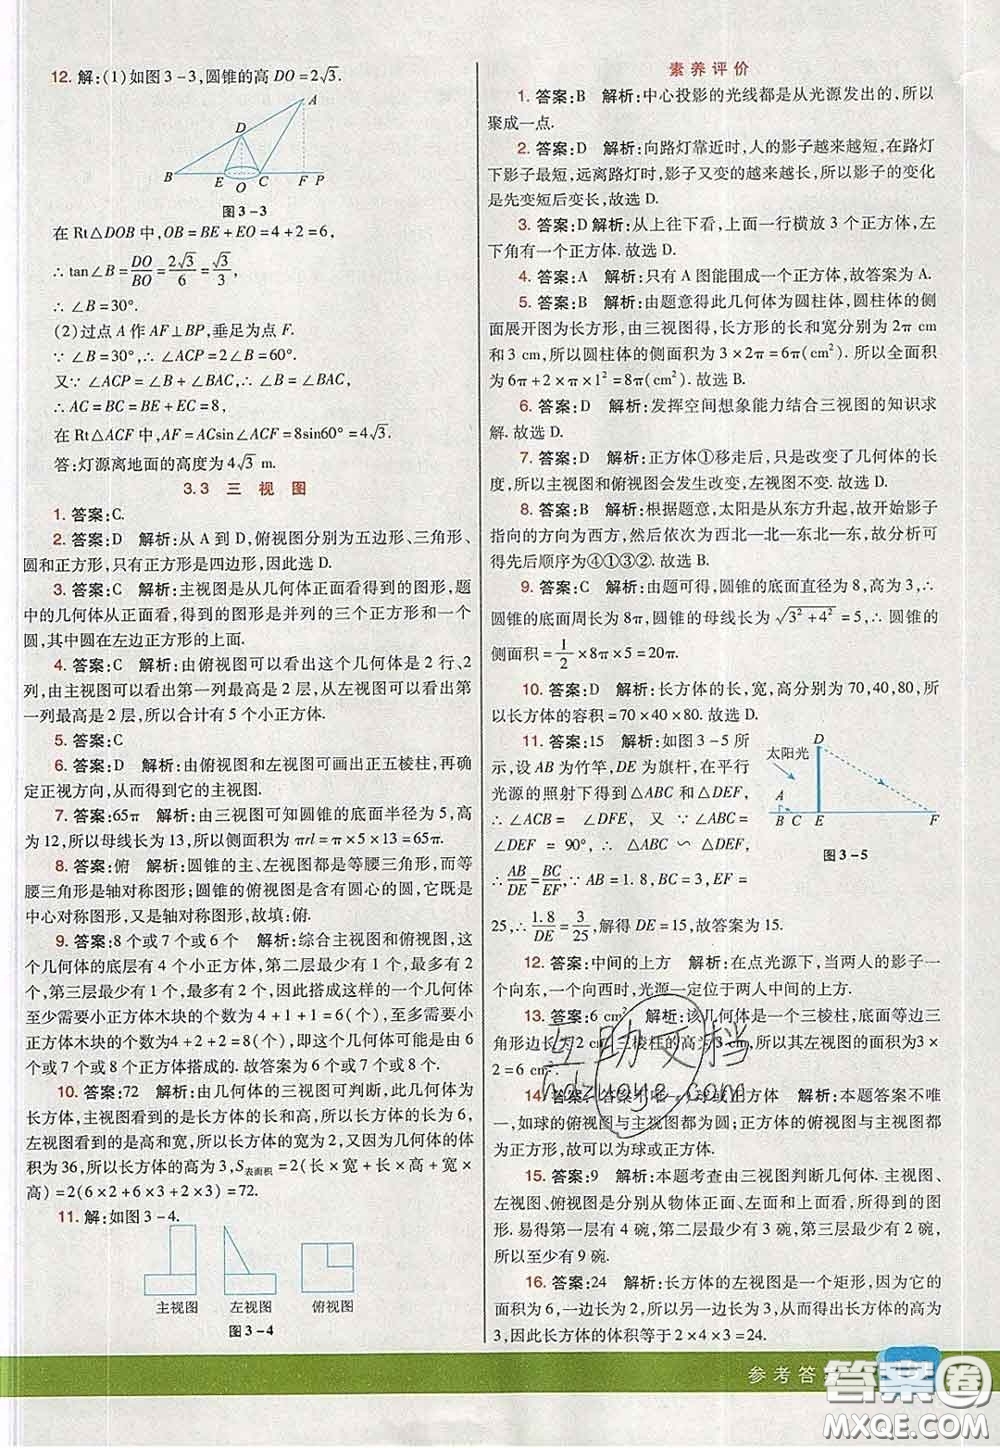 12. 解:(1)如图3-3,圆锥的高DO=2√3.
A
D
B E O C F P
图3-3
在Rt△DOB中,OB=BE+EO=4+2=6,
∴tan∠B=DO/BO=2√3/6=√3/3,
∴∠B=30°.
(2)过点A作AF⊥BP,垂足为点F.
∵∠B=30°,∴∠ACP=2∠B=60°.
又∵∠ACP=∠B+∠BAC,∴∠B=∠BAC=30°,
∴AC=BC=BE+EC=8,
在Rt△ACF中,AF=ACsin∠ACF=8sin60°=4√3.
答:灯源离地面的高度为4√3 m.
3.3 三 视 图
1. 答案:C.
2. 答案:D 解析:从A到D,俯视图分别为五边形、三角形、
圆和正方形,只有正方形是四边形,因此选D.
3. 答案:C 解析:主视图是从几何体正面看得到的图形,题
中的几何体从正面看,得到的图形是并列的三个正方形和一个
圆,其中圆在左边正方形的上面.
4. 答案:C 解析:由俯视图可以看出这个几何体是2行、2
列,由主视图可以看出第一列最高是2层,从左视图可以看出第
一列最高是2层,所以合计有5个小正方体.
5. 答案:C
6. 答案:D 解析:由俯视图和左视图可画出正五棱柱,可以
确定正视方向,从而得到它的主视图.
7. 答案:65π 解析:由三视图可知圆锥的底面半径为5,高
为12,所以母线长为13,所以侧面积为πrl=π×5×13=65π.
8. 答案:俯 解析:圆锥的主、左视图都是等腰三角形,而等
腰三角形是轴对称图形;圆锥的俯视图是含有圆心的圆,它既是
中心对称图形,又是轴对称图形,故填:俯.
9. 答案:8个或7个或6个 解析:综合主视图和俯视图,这
个几何体的底层有4个小正方体,第二层最少有1个,最多有2
个,第三层最少有1个,最多有2个,因此搭成这样的几何体
至少需要小正方体木块的个数为4+1+1=6(个),至多需要小
正方体木块的个数为4+2+2=8(个),所以这个几何体可能是
由6或7或8个正方体搭成的;故答案为:6个或7个或8个.
10. 答案:72 解析:由几何体的三视图可判断,此几何体为
长方体,主视图看到的是长方体的长和高,所以长方体的长为6,
左视图看到的是高和宽,所以长方体的宽为2,又因为几何体的体
积为36,所以长方体的高为3,S表面积=2(长×宽+长×高+宽×
高)=2(6×2+2×3+6×3)=72.
11. 解:如图3-4.
主视图 左视图 俯视图
图3-4
素养评价
1. 答案:B 解析:中心投影的光线都是从光源发出的,所以
聚成一点.
2. 答案:D 解析:向路灯靠近时,人的影子越来越短,在路灯
下影子最短,远离路灯时,影子又变的越来越长,所以影子的变化
是先变短后变长,故选D.
3. 答案:D 解析:从上往下看,上面一行横放3个正方体,左
下角有一个正方体.故选D.
4. 答案:A 解析:只有A图能围成一个正方体,故答案为A.
5. 答案:B 解析:由题意得此几何体为圆柱体,圆柱体的侧
面展开图为长方形,由三视图得,长方形的长和宽分别为2π cm
和3 cm,所以圆柱体的侧面积为3×2π=6π(cm²).所以全面积
为6π+2×π×1²=8π(cm²).故选B.
6. 答案:D 解析:发挥空间想象能力结合三视图的知识求
解.故选D.
7. 答案:D 解析:正方体①移走后,只是改变了几何体的长
度,所以主视图和俯视图会发生改变,左视图不变.故选D.
8. 答案:B 解析:根据题意,太阳是从东方升起,故开始影子
指向的方向为西方,然后依次为西北—北—东北—东,故分析可
得先后顺序为④①③②.故选B.
9. 答案:C 解析:由题可得,圆锥的底面直径为8,高为3,∴
圆锥的底面周长为8π,圆锥的母线长为√3²+4²=5,∴圆锥的
侧面积=1/2×8π×5=20π.
10. 答案:D 解析:长方体的长,宽,高分别为70,40,80,所
以长方体的容积=70×40×80.故选D.
11. 答案:15 解析:如图3-5所
示,设AB为竹竿,DE为旗杆,在平行
光源的照射下得到△ABC和△DEF,
∴∠ACB=∠DFE,又∵∠ABC=
∠DEF=90°,∴△ABC∽△DEF,
∴AB/DE=BC/EF,∵AB=1.8,BC=3,EF=
太阳光
D
A
B C E F
图3-5
25,∴1.8/DE=3/25,解得DE=15,故答案为15.
12. 答案:中间的上方 解析:在点光源下,当两人的影子一
个向东,一个向西时,光源一定位于两人中间的上方.
13. 答案:6 cm² 解析:该几何体是一个三棱柱,底面等边三
角形边长为2 cm,三棱柱的高为3 cm,所以,其左视图的面积为3×
2=6 cm².
14. 答案:答案不唯一,球或正方体 解析:本题答案不唯
一,如球的俯视图与主视图都为圆;正方体的俯视图与主视图都
为正方形,故可以为球或正方体.
15. 答案:9 解析:本题考查由三视图判断几何体.主视图、
左视图、俯视图是分别从物体正面、左面和上面看,所得到的图
形.易得第一层有4碗,第二层最少有3碗,第三层最少有2碗,
所以至少有9碗.
16. 答案:24 解析:长方体的左视图是一个矩形,因为它的
面积为6,一边长为2,所以另一边长为3,所以长方体的高为
3,因此长方体的体积等于2×4×3=24.
互助文档
hdzuoye.com
参考答
答案圈
MXQE.COM